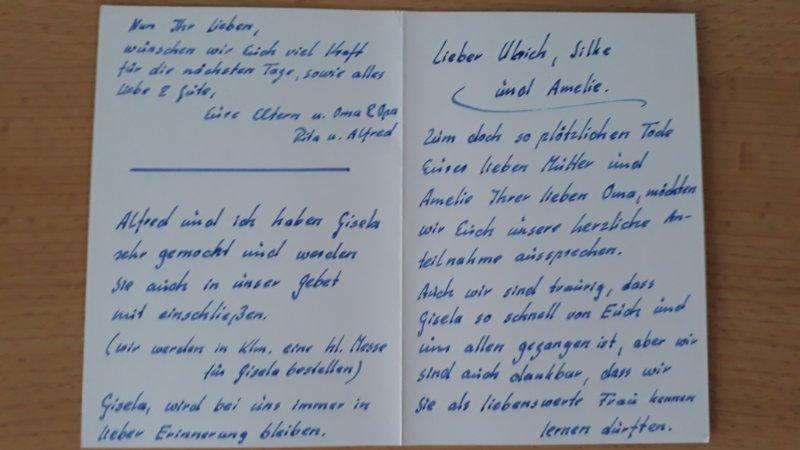 Nun Ihr Lieben,
wünschen wir Euch viel Kraft
für die nächsten Tage, sowie alles
liebe & Gute,
Eure Eltern u. Oma & Opa
Rita u. Alfred
Alfred und ich haben Gisela
sehr gemocht und werden
Sie auch in unser Gebet
mit einschließen.
(wir werden in Klm. eine hl. Messe
für Gisela bestellen)
Gisela, wird bei uns immer in
lieber Erinnerung bleiben.
Lieber Ulrich, Silke
und Amelie.
Zum doch so plötzlichen Tode
Eurer lieben Mutter und
Amelie Ihrer lieben Oma, möchten
wir Euch unsere herzliche An-
teilnahme aussprechen.
Auch wir sind traurig, dass
Gisela so schnell von Euch und
uns allen gegangen ist, aber wir
sind auch dankbar, dass wir
Sie als liebenswerte Frau kennen
lernen durften.